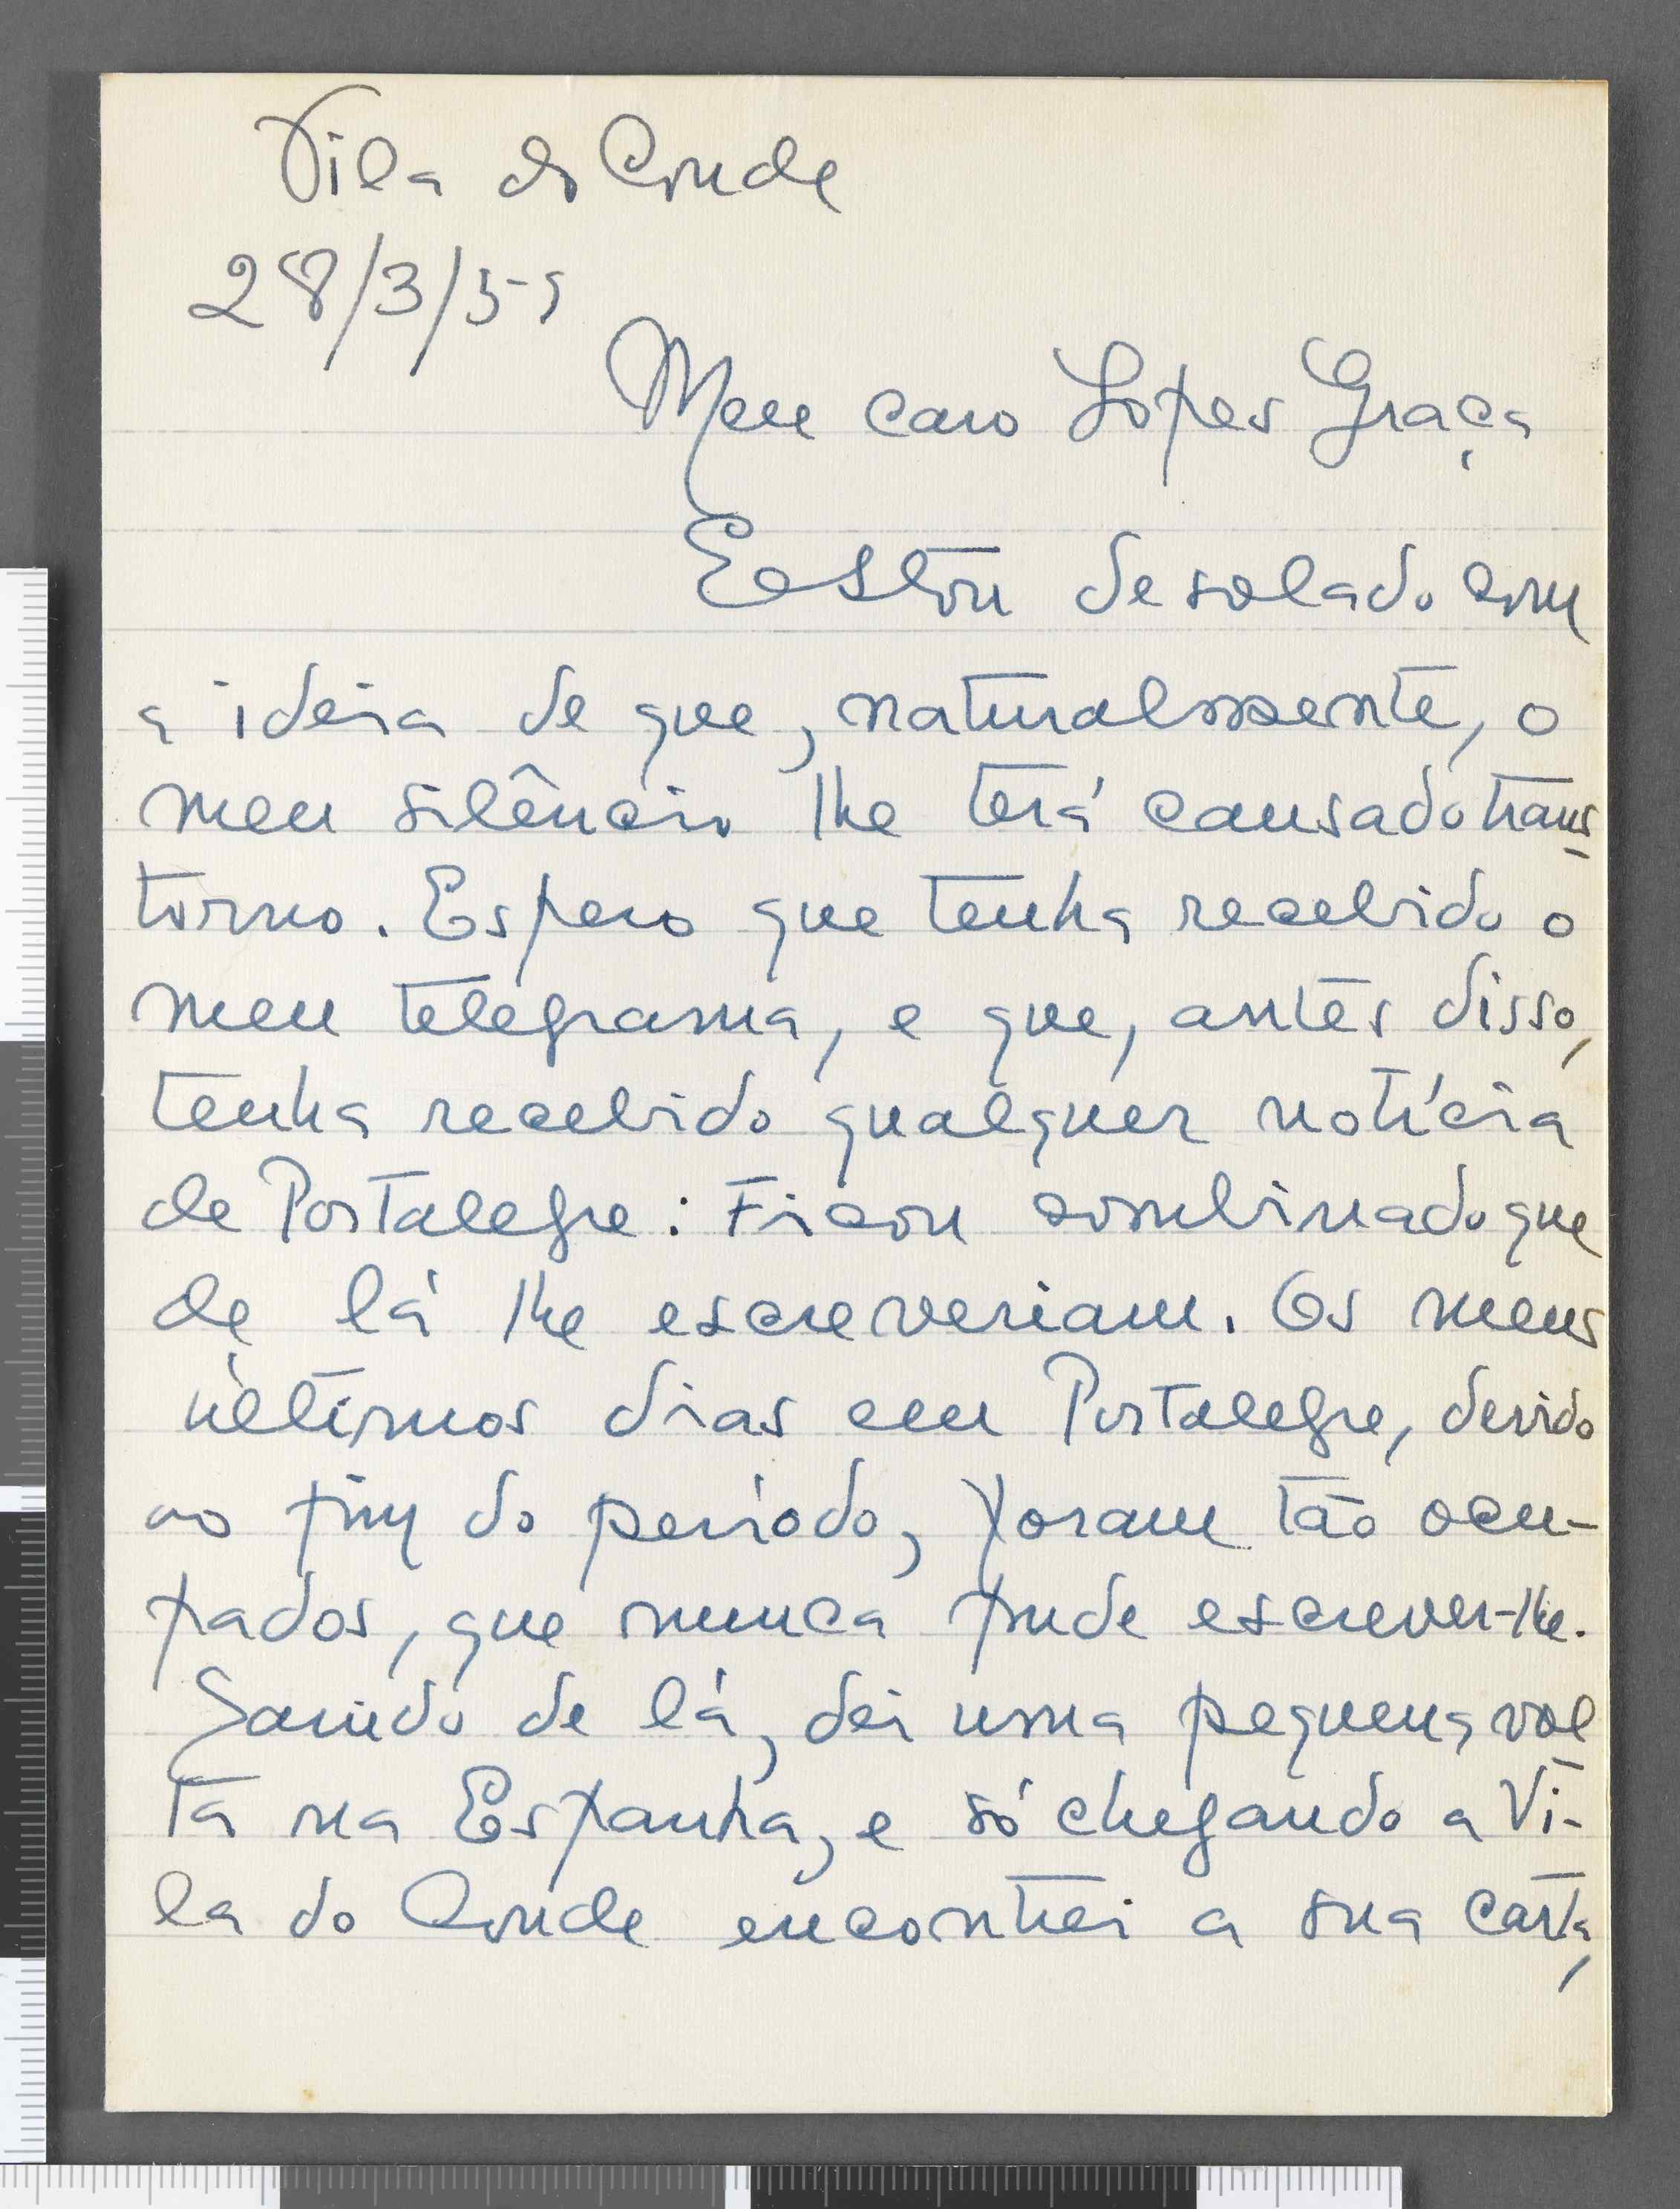 Vila do Conde
28/3/55
Meu caro Lopes Graça
Estou desolado com
a ideia de que, naturalmente, o
meu silêncio lhe terá causado trans
torno. Espero que tenha recebido o
meu telegrama, e que, antes disso,
tenha recebido qualquer notícia
de Portalegre: Ficou combinado que
de lá lhe escreveriam. Os meus
últimos dias em Portalegre, devido
ao fim do período, foram tão ocu-
pados, que nunca pude escrever-lhe.
Saindo de lá, dei uma pequena vol
ta na Espanha, e só chegando a Vi-
la do Conde encontrei a sua carta,